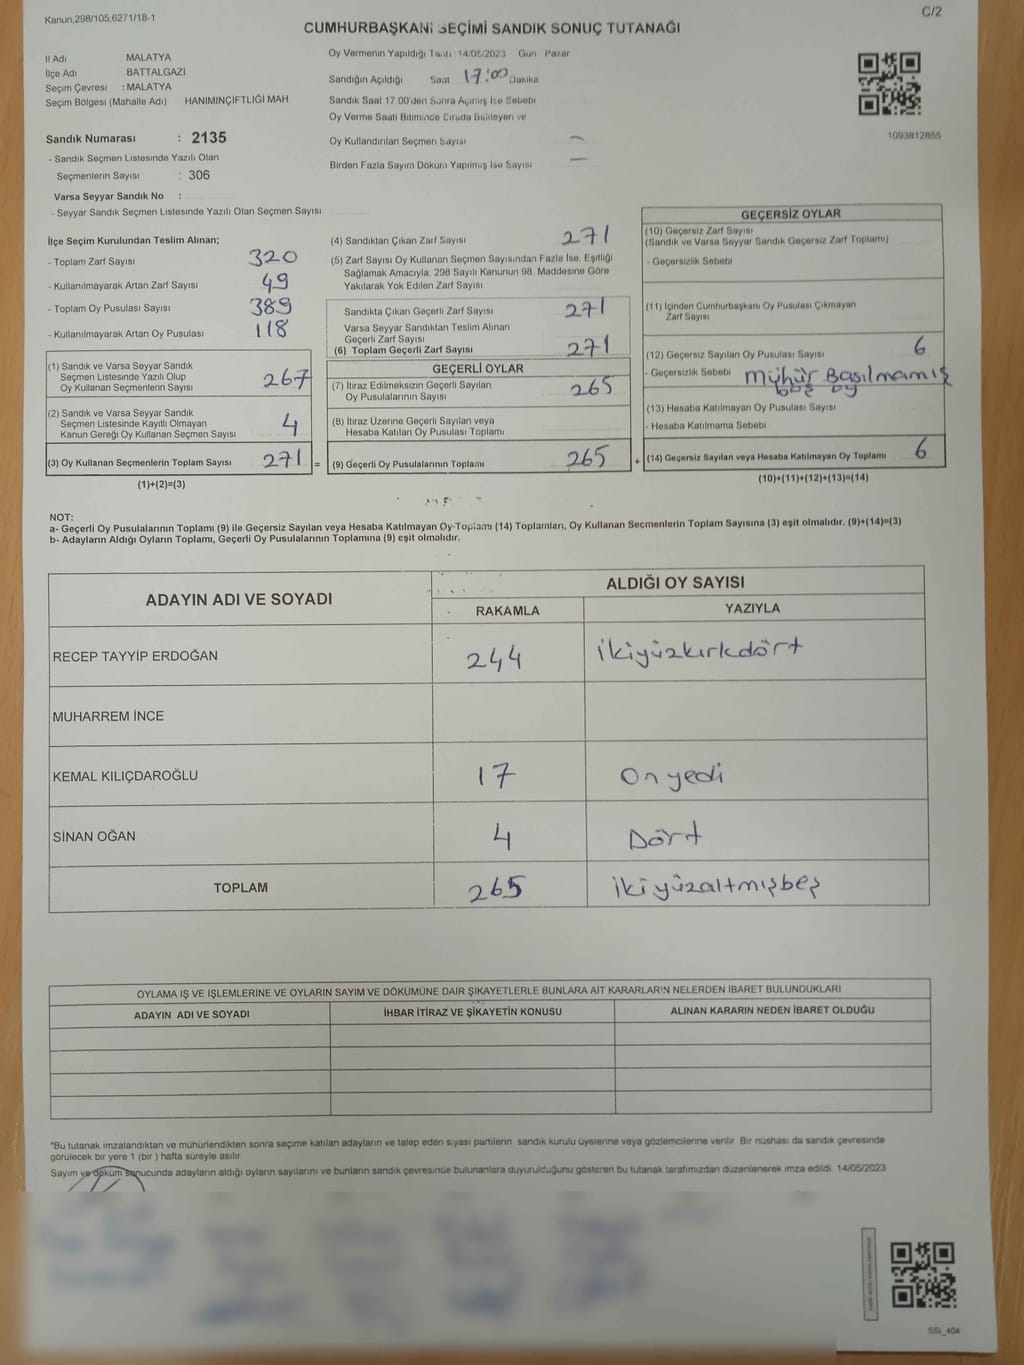 Kanun,298/105,6271/18-1
C/2
CUMHURBAŞKANI SEÇİMİ SANDIK SONUÇ TUTANAĞI
İl Adı MALATYA
İlçe Adı BATTALGAZİ
Seçim Çevresi : MALATYA
Seçim Bölgesi (Mahalle Adı) HANIMINÇİFTLİĞİ MAH
Oy Vermenin Yapıldığı Tarih 14/05/2023 Gün Pazar
Sandığın Açıldığı Saat 17:00 Dakika
Sandık Saat 17.00'den Sonra Açılmış İse Sebebi
Oy Verme Saati Bitiminde Sırada Bekleyen ve
Oy Kullandırılan Seçmen Sayısı —
Birden Fazla Sayım Döküm Yapılmış İse Sayısı —
1093812855
Sandık Numarası : 2135
- Sandık Seçmen Listesinde Yazılı Olan
Seçmenlerin Sayısı : 306
Varsa Seyyar Sandık No :
- Seyyar Sandık Seçmen Listesinde Yazılı Olan Seçmen Sayısı
İlçe Seçim Kurulundan Teslim Alınan;
- Toplam Zarf Sayısı 320
- Kullanılmayarak Artan Zarf Sayısı 49
- Toplam Oy Pusulası Sayısı 389
- Kullanılmayarak Artan Oy Pusulası 118
(1) Sandık ve Varsa Seyyar Sandık
Seçmen Listesinde Yazılı Olup
Oy Kullanan Seçmenlerin Sayısı 267
(2) Sandık ve Varsa Seyyar Sandık
Seçmen Listesinde Kayıtlı Olmayan
Kanun Gereği Oy Kullanan Seçmen Sayısı 4
(3) Oy Kullanan Seçmenlerin Toplam Sayısı 271 =
(1)+(2)=(3)
(4) Sandıktan Çıkan Zarf Sayısı 271
(5) Zarf Sayısı Oy Kullanan Seçmen Sayısından Fazla İse, Eşitliği
Sağlamak Amacıyla, 298 Sayılı Kanunun 98. Maddesine Göre
Yakılarak Yok Edilen Zarf Sayısı
Sandıkta Çıkan Geçerli Zarf Sayısı 271
Varsa Seyyar Sandıktan Teslim Alınan
Geçerli Zarf Sayısı
(6) Toplam Geçerli Zarf Sayısı 271
GEÇERLİ OYLAR
(7) İtiraz Edilmeksizin Geçerli Sayılan
Oy Pusulalarının Sayısı 265
(8) İtiraz Üzerine Geçerli Sayılan veya
Hesaba Katılan Oy Pusulası Toplamı
(9) Geçerli Oy Pusulalarının Toplamı 265 +
GEÇERSİZ OYLAR
(10) Geçersiz Zarf Sayısı
(Sandık ve Varsa Seyyar Sandık Geçersiz Zarf Toplamı)
- Geçersizlik Sebebi
(11) İçinden Cumhurbaşkanı Oy Pusulası Çıkmayan
Zarf Sayısı
(12) Geçersiz Sayılan Oy Pusulası Sayısı 6
- Geçersizlik Sebebi mühür Basılmamış
boş oy
(13) Hesaba Katılmayan Oy Pusulası Sayısı
- Hesaba Katılmama Sebebi
(14) Geçersiz Sayılan veya Hesaba Katılmayan Oy Toplamı 6
(10)+(11)+(12)+(13)=(14)
NOT:
a- Geçerli Oy Pusulalarının Toplamı (9) ile Geçersiz Sayılan veya Hesaba Katılmayan Oy Toplamı (14) Toplamları, Oy Kullanan Seçmenlerin Toplam Sayısına (3) eşit olmalıdır. (9)+(14)=(3)
b- Adayların Aldığı Oyların Toplamı, Geçerli Oy Pusulalarının Toplamına (9) eşit olmalıdır.
ADAYIN ADI VE SOYADI
ALDIĞI OY SAYISI
RAKAMLA YAZIYLA
RECEP TAYYİP ERDOĞAN 244 ikiyüzkırkdört
MUHARREM İNCE
KEMAL KILIÇDAROĞLU 17 On yedi
SİNAN OĞAN 4 Dört
TOPLAM 265 ikiyüzaltmışbeş
OYLAMA İŞ VE İŞLEMLERİNE VE OYLARIN SAYIM VE DÖKÜMÜNE DAİR ŞİKAYETLERLE BUNLARA AİT KARARLARIN NELERDEN İBARET BULUNDUKLARI
ADAYIN ADI VE SOYADI İHBAR İTİRAZ VE ŞİKAYETİN KONUSU ALINAN KARARIN NEDEN İBARET OLDUĞU
*Bu tutanak imzalandıktan ve mühürlendikten sonra seçime katılan adayların ve talep eden siyasi partilerin sandık kurulu üyelerine veya gözlemcilerine verilir. Bir nüshası da sandık çevresinde
görülecek bir yere 1 (bir) hafta süreyle asılır.
Sayım ve döküm sonucunda adayların aldığı oyların sayılarını ve bunların sandık çevresinde bulunanlara duyurulduğunu gösteren bu tutanak tarafımızdan düzenlenerek imza edildi. 14/05/2023
SSI_404